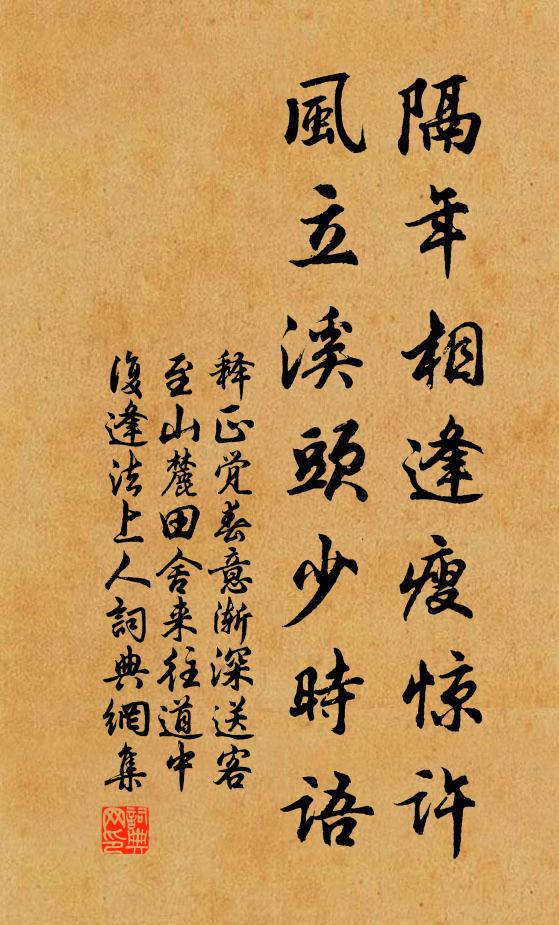 隔年相逢瘦惊许
風立溪頭少時语
释正觉春意渐深送客
至山麓田舍来往道中
復逢法上人詞典網集
詞典网印